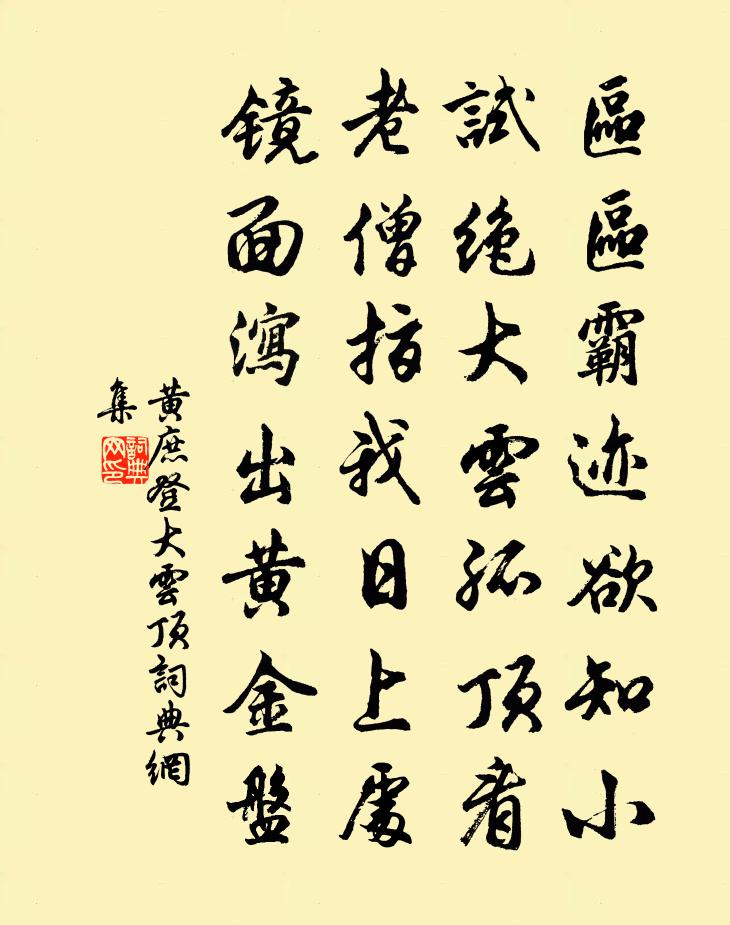 區區霸迹欲知小
試绝大雲孤頂看
老僧指我日上處
鏡面瀉出黄金盤
黄庶登大雲頂詞典網
集
詞典網印